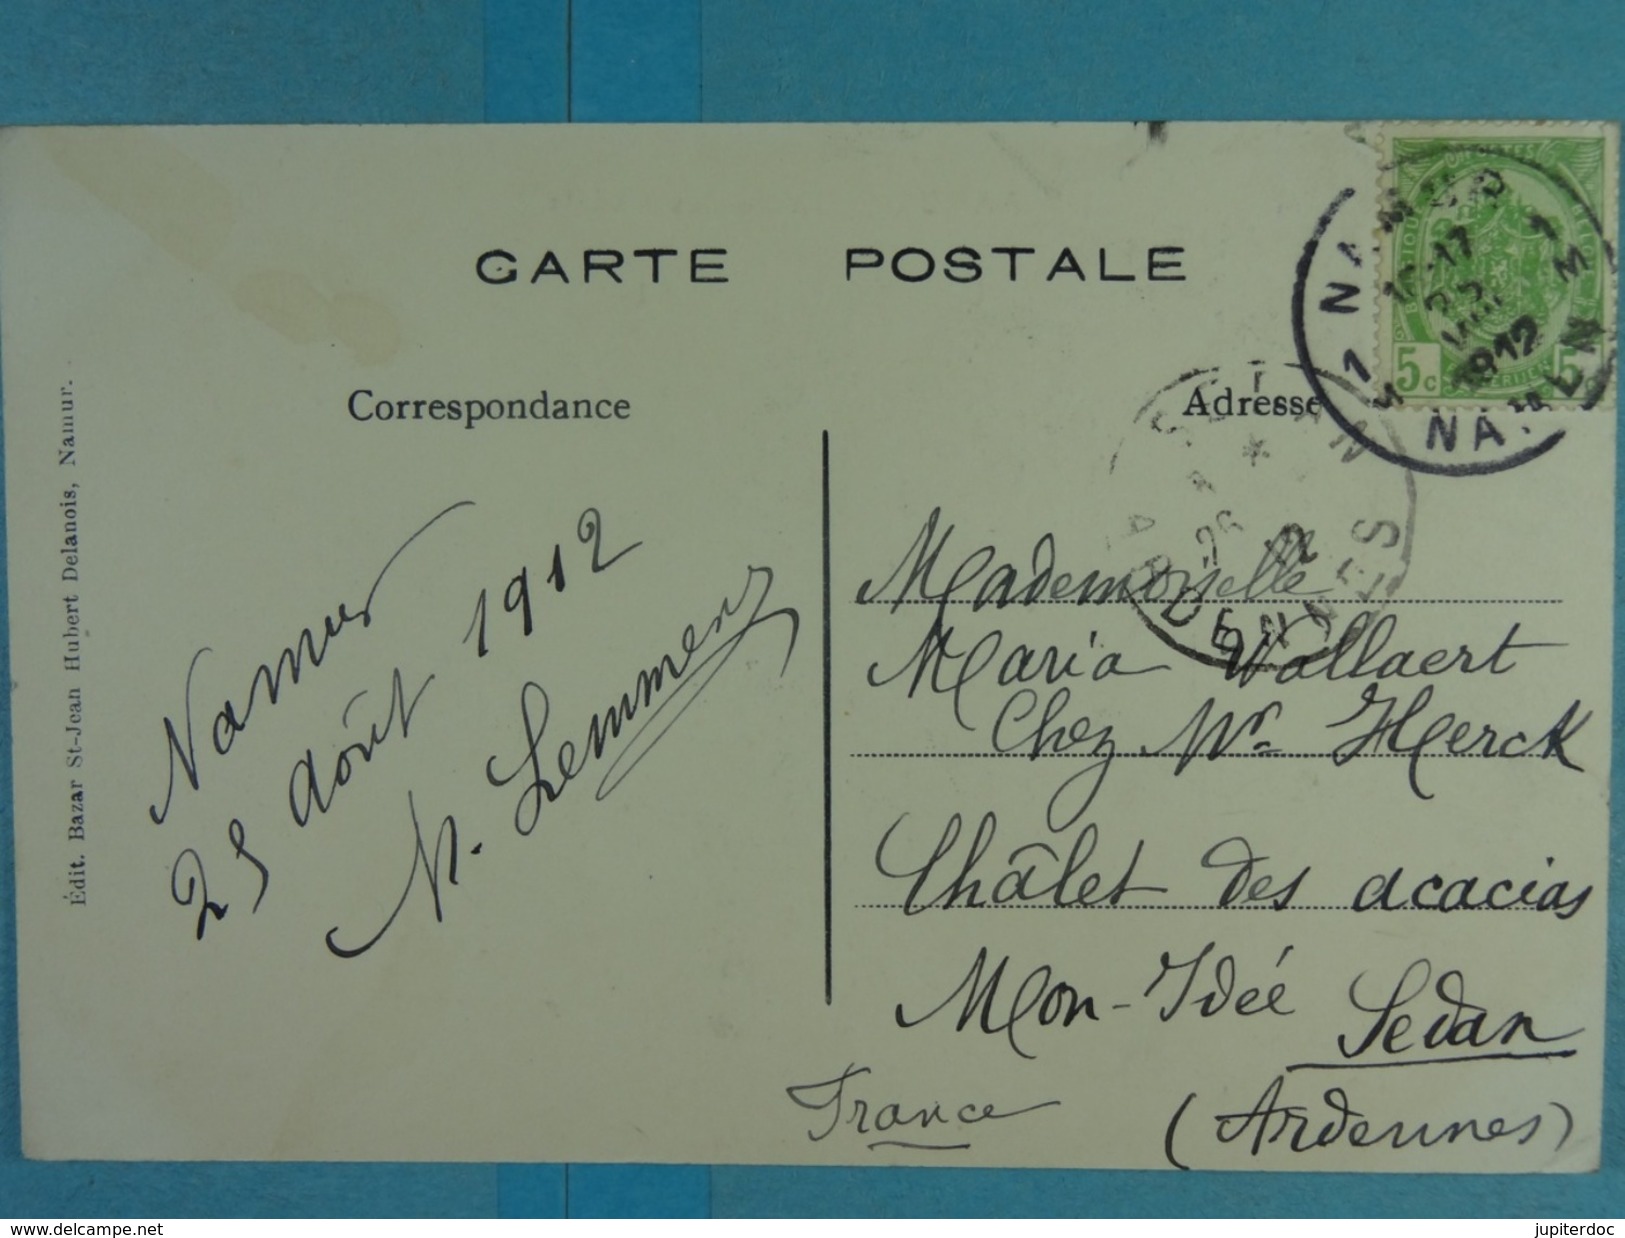 CARTE POSTALE
Correspondance
Adresse
Édit. Bazar St-Jean Hubert Delanois, Namur.
Namur
25 Août 1912
N. Lemmens
Mademoiselle
Maria Wallaert
Chez Mr Herck
Châlet des acacias
Mon-Idée Sedan
France (Ardennes)
NAMUR 1
1912
NAMEN 1
5c 5c
SEDAN
26
12
ARDENNES
www.delcampe.net
jupiterdoc